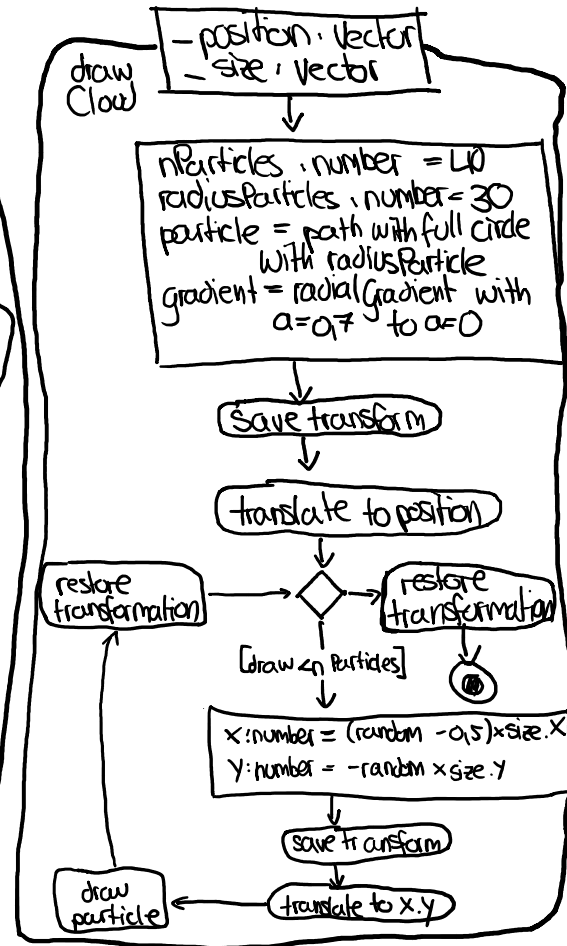 draw
Cloud
- position : Vector
- size : Vector
nParticles : number = 40
radiusParticles : number = 30
particle = path with full circle
with radiusParticle
gradient = radialGradient with
a=0,7 to a=0
save transform
translate to position
restore
transformation
restore
transformation
[draw <n Particles]
X:number = (random -0,5)×size.X
Y:number = -random ×size.Y
save transform
translate to X.Y
draw
particle